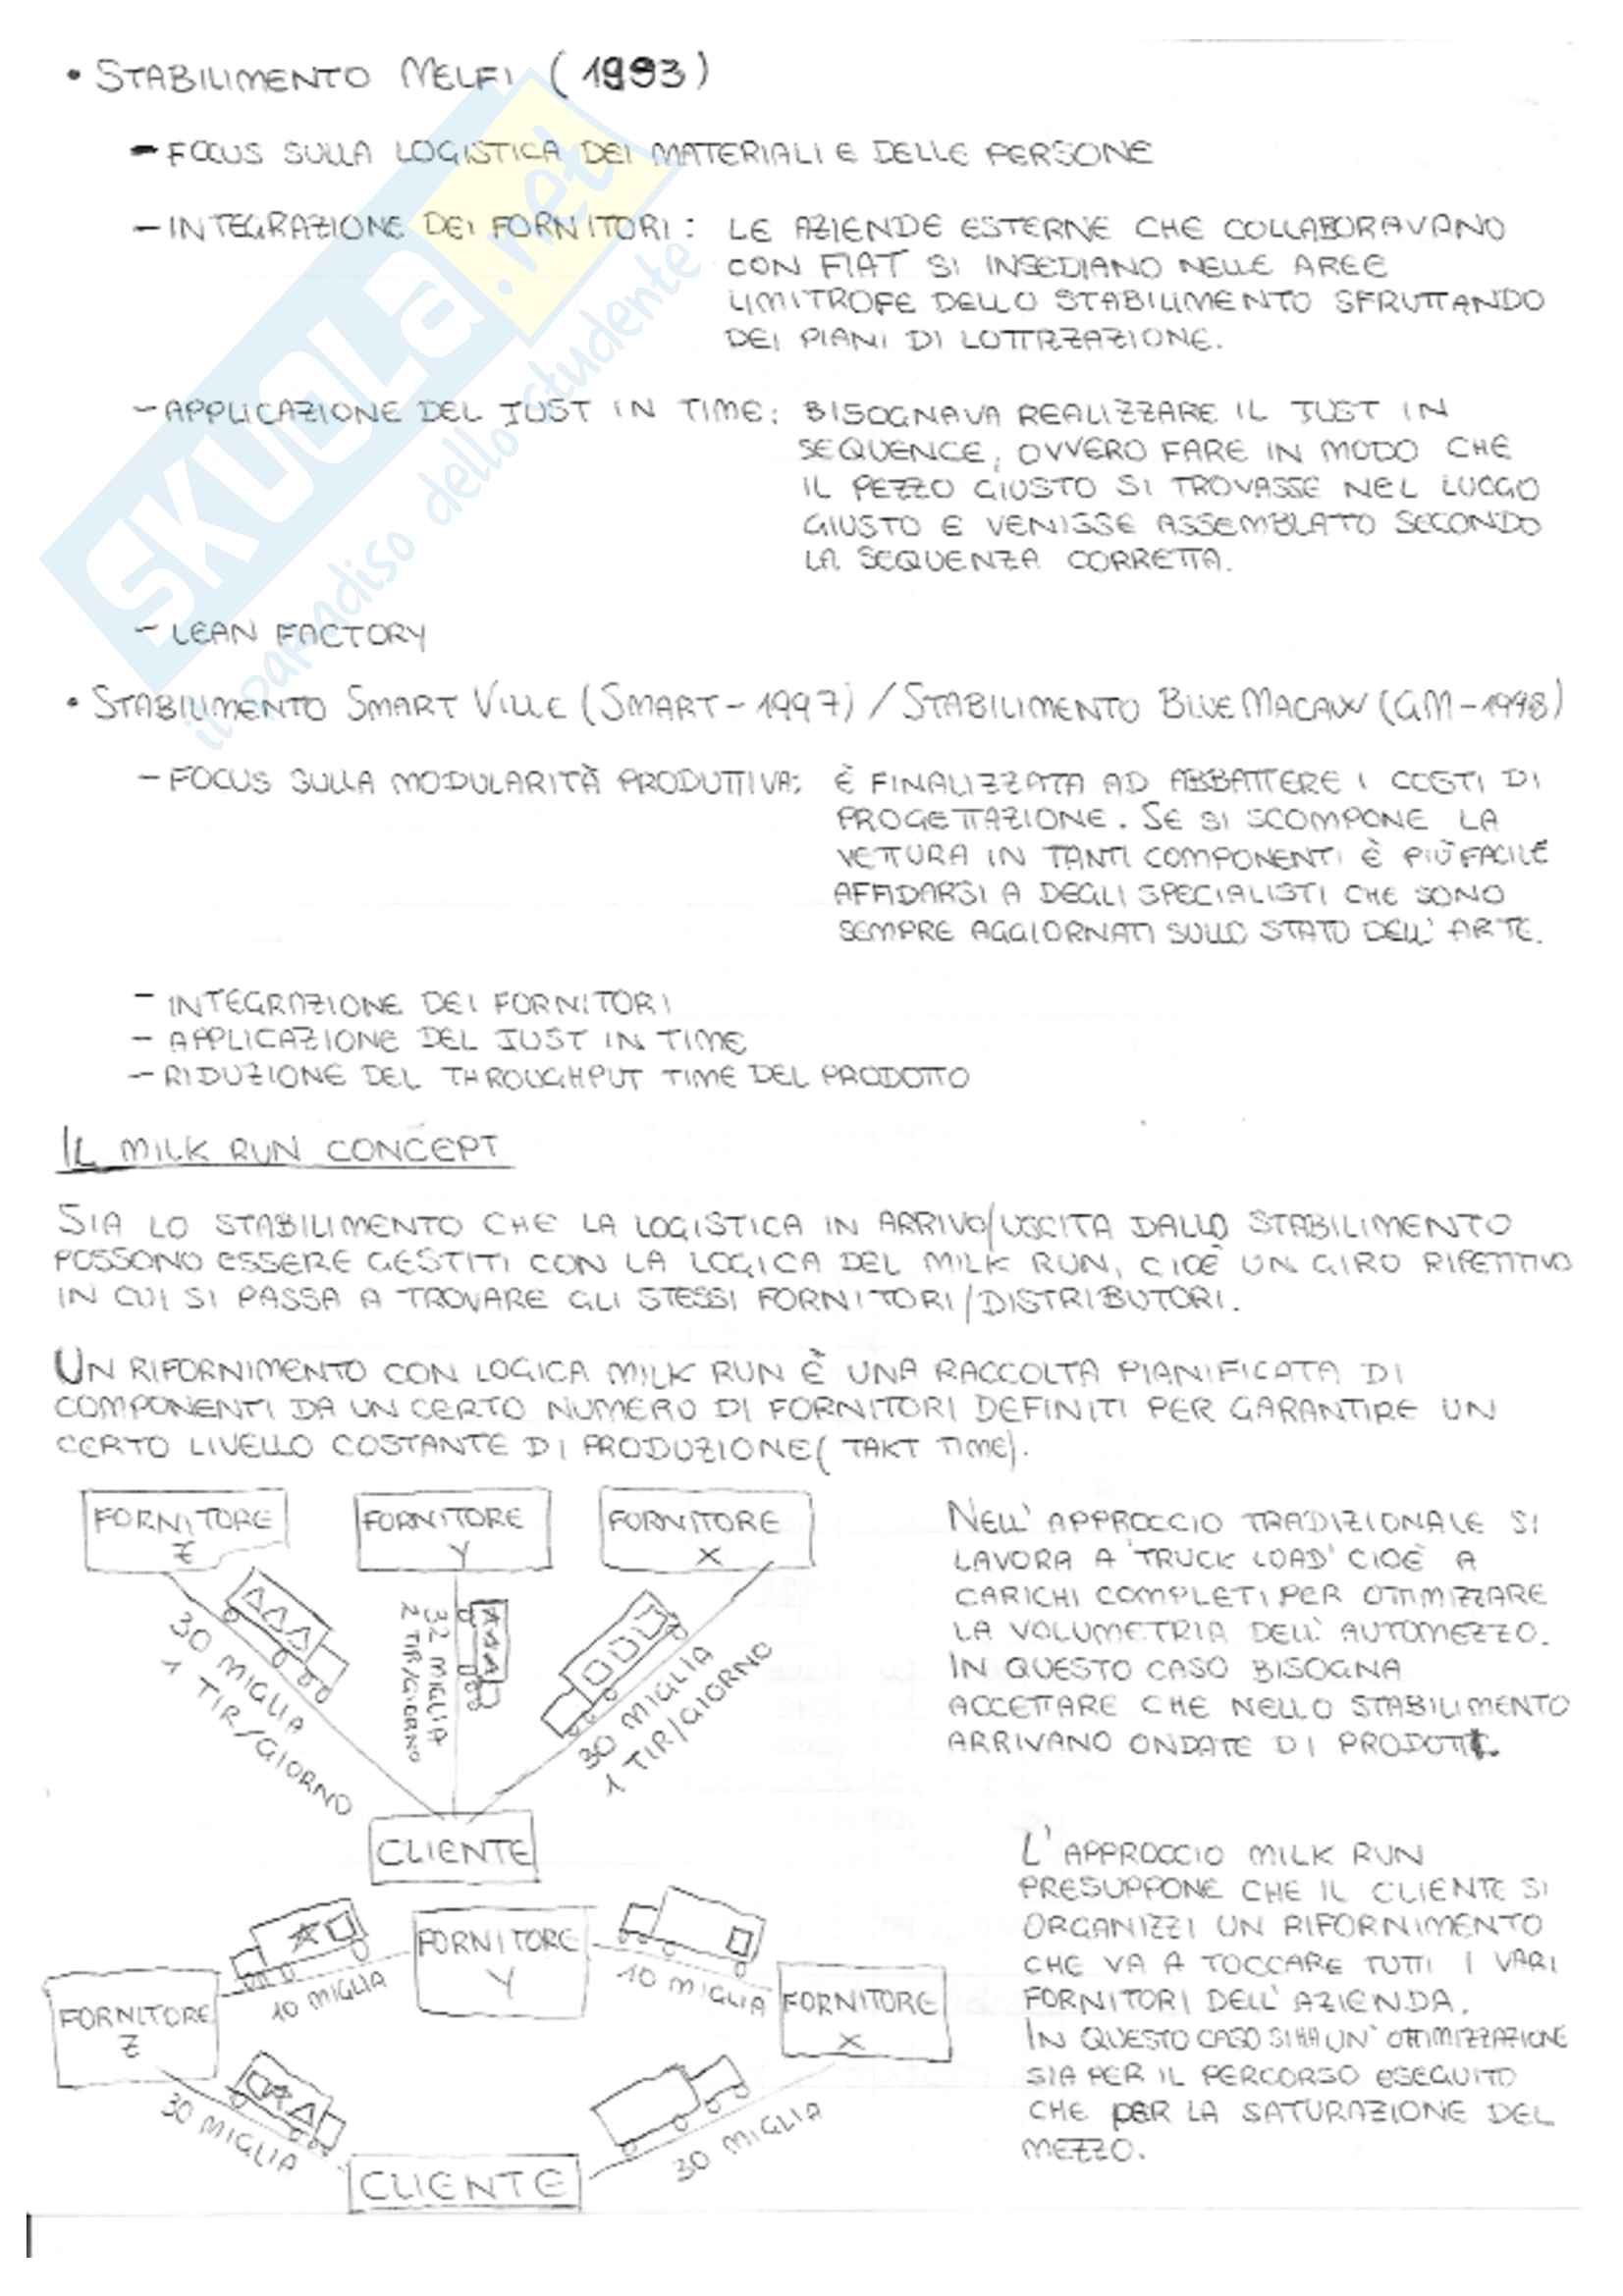 • STABILIMENTO MELFI (1993)
- FOCUS SULLA LOGISTICA DEI MATERIALI E DELLE PERSONE
- INTEGRAZIONE DEI FORNITORI: LE AZIENDE ESTERNE CHE COLLABORAVANO
CON FIAT SI INSEDIANO NELLE AREE
LIMITROFE DELLO STABILIMENTO SFRUTTANDO
DEI PIANI DI LOTTIZZAZIONE.
- APPLICAZIONE DEL JUST IN TIME: BISOGNAVA REALIZZARE IL JUST IN
SEQUENCE, OVVERO FARE IN MODO CHE
IL PEZZO GIUSTO SI TROVASSE NEL LUOGO
GIUSTO E VENISSE ASSEMBLATO SECONDO
LA SEQUENZA CORRETTA.
- LEAN FACTORY
SKUOLA.net
il paradiso dello studente
• STABILIMENTO SMART VILLE (SMART-1997) / STABILIMENTO BLUE MACAW (GM-1998)
- FOCUS SULLA MODULARITÀ PRODUTTIVA: È FINALIZZATA AD ABBATTERE I COSTI DI
PROGETTAZIONE. SE SI SCOMPONE LA
VETTURA IN TANTI COMPONENTI È PIÙ FACILE
AFFIDARSI A DEGLI SPECIALISTI CHE SONO
SEMPRE AGGIORNATI SULLO STATO DELL'ARTE.
- INTEGRAZIONE DEI FORNITORI
- APPLICAZIONE DEL JUST IN TIME
- RIDUZIONE DEL THROUGHPUT TIME DEL PRODOTTO
IL MILK RUN CONCEPT
SIA LO STABILIMENTO CHE LA LOGISTICA IN ARRIVO/USCITA DALLO STABILIMENTO
POSSONO ESSERE GESTITI CON LA LOGICA DEL MILK RUN, CIOÈ UN GIRO RIPETITIVO
IN CUI SI PASSA A TROVARE GLI STESSI FORNITORI/DISTRIBUTORI.
UN RIFORNIMENTO CON LOGICA MILK RUN È UNA RACCOLTA PIANIFICATA DI
COMPONENTI DA UN CERTO NUMERO DI FORNITORI DEFINITI PER GARANTIRE UN
CERTO LIVELLO COSTANTE DI PRODUZIONE (TAKT TIME).
FORNITORE
Z
FORNITORE
Y
FORNITORE
X
30 MIGLIA
1 TIR/GIORNO
32 MIGLIA
2 TIR/GIORNO
30 MIGLIA
1 TIR/GIORNO
CLIENTE
NELL'APPROCCIO TRADIZIONALE SI
LAVORA A 'TRUCK LOAD' CIOÈ A
CARICHI COMPLETI PER OTTIMIZZARE
LA VOLUMETRIA DELL'AUTOMEZZO.
IN QUESTO CASO BISOGNA
ACCETTARE CHE NELLO STABILIMENTO
ARRIVANO ONDATE DI PRODOTTI.
FORNITORE
Y
10 MIGLIA
10 MIGLIA
FORNITORE
Z
FORNITORE
X
30 MIGLIA
30 MIGLIA
CLIENTE
L'APPROCCIO MILK RUN
PRESUPPONE CHE IL CLIENTE SI
ORGANIZZI UN RIFORNIMENTO
CHE VA A TOCCARE TUTTI I VARI
FORNITORI DELL'AZIENDA.
IN QUESTO CASO SI HA UN'OTTIMIZZAZIONE
SIA PER IL PERCORSO ESEGUITO
CHE PER LA SATURAZIONE DEL
MEZZO.